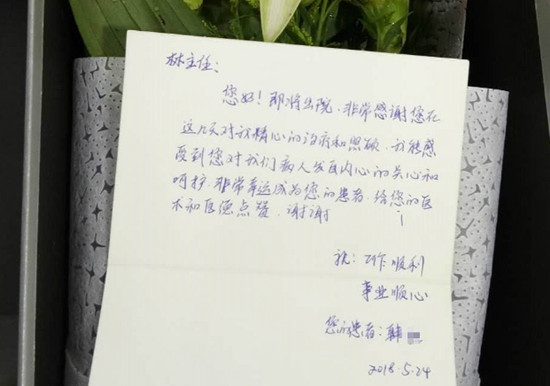 林主任：
您好！即将出院，非常感谢您在
这几天对我精心的治疗和照顾，我能感
受到您对我们病人发自内心的关心和
呵护，非常幸运成为您的患者，给您的医
术和医德点赞，谢谢
祝：工作顺利
事业顺心
您的患者：韩
2018.5.24